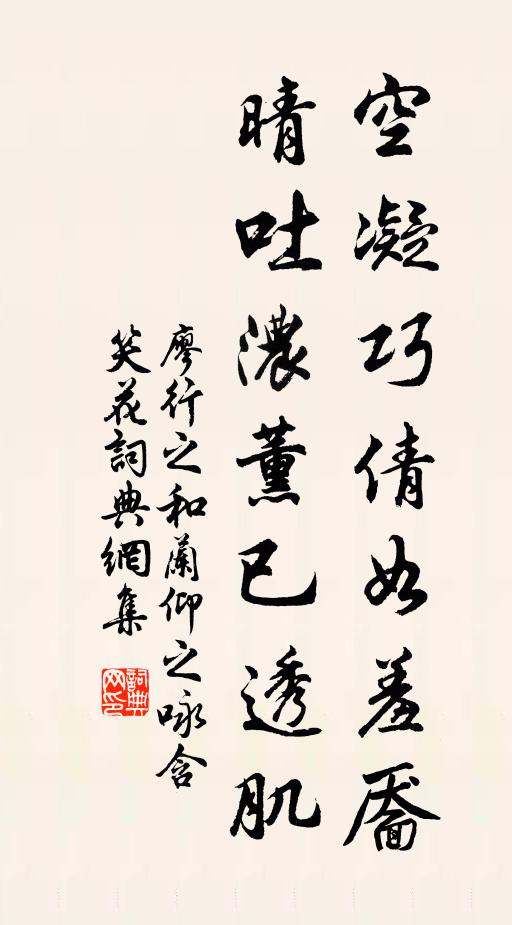 空凝巧倩如羞靨
晴吐濃薰已透肌
廖行之和蘭仰之咏含
笑花詞典網集
詞典网印